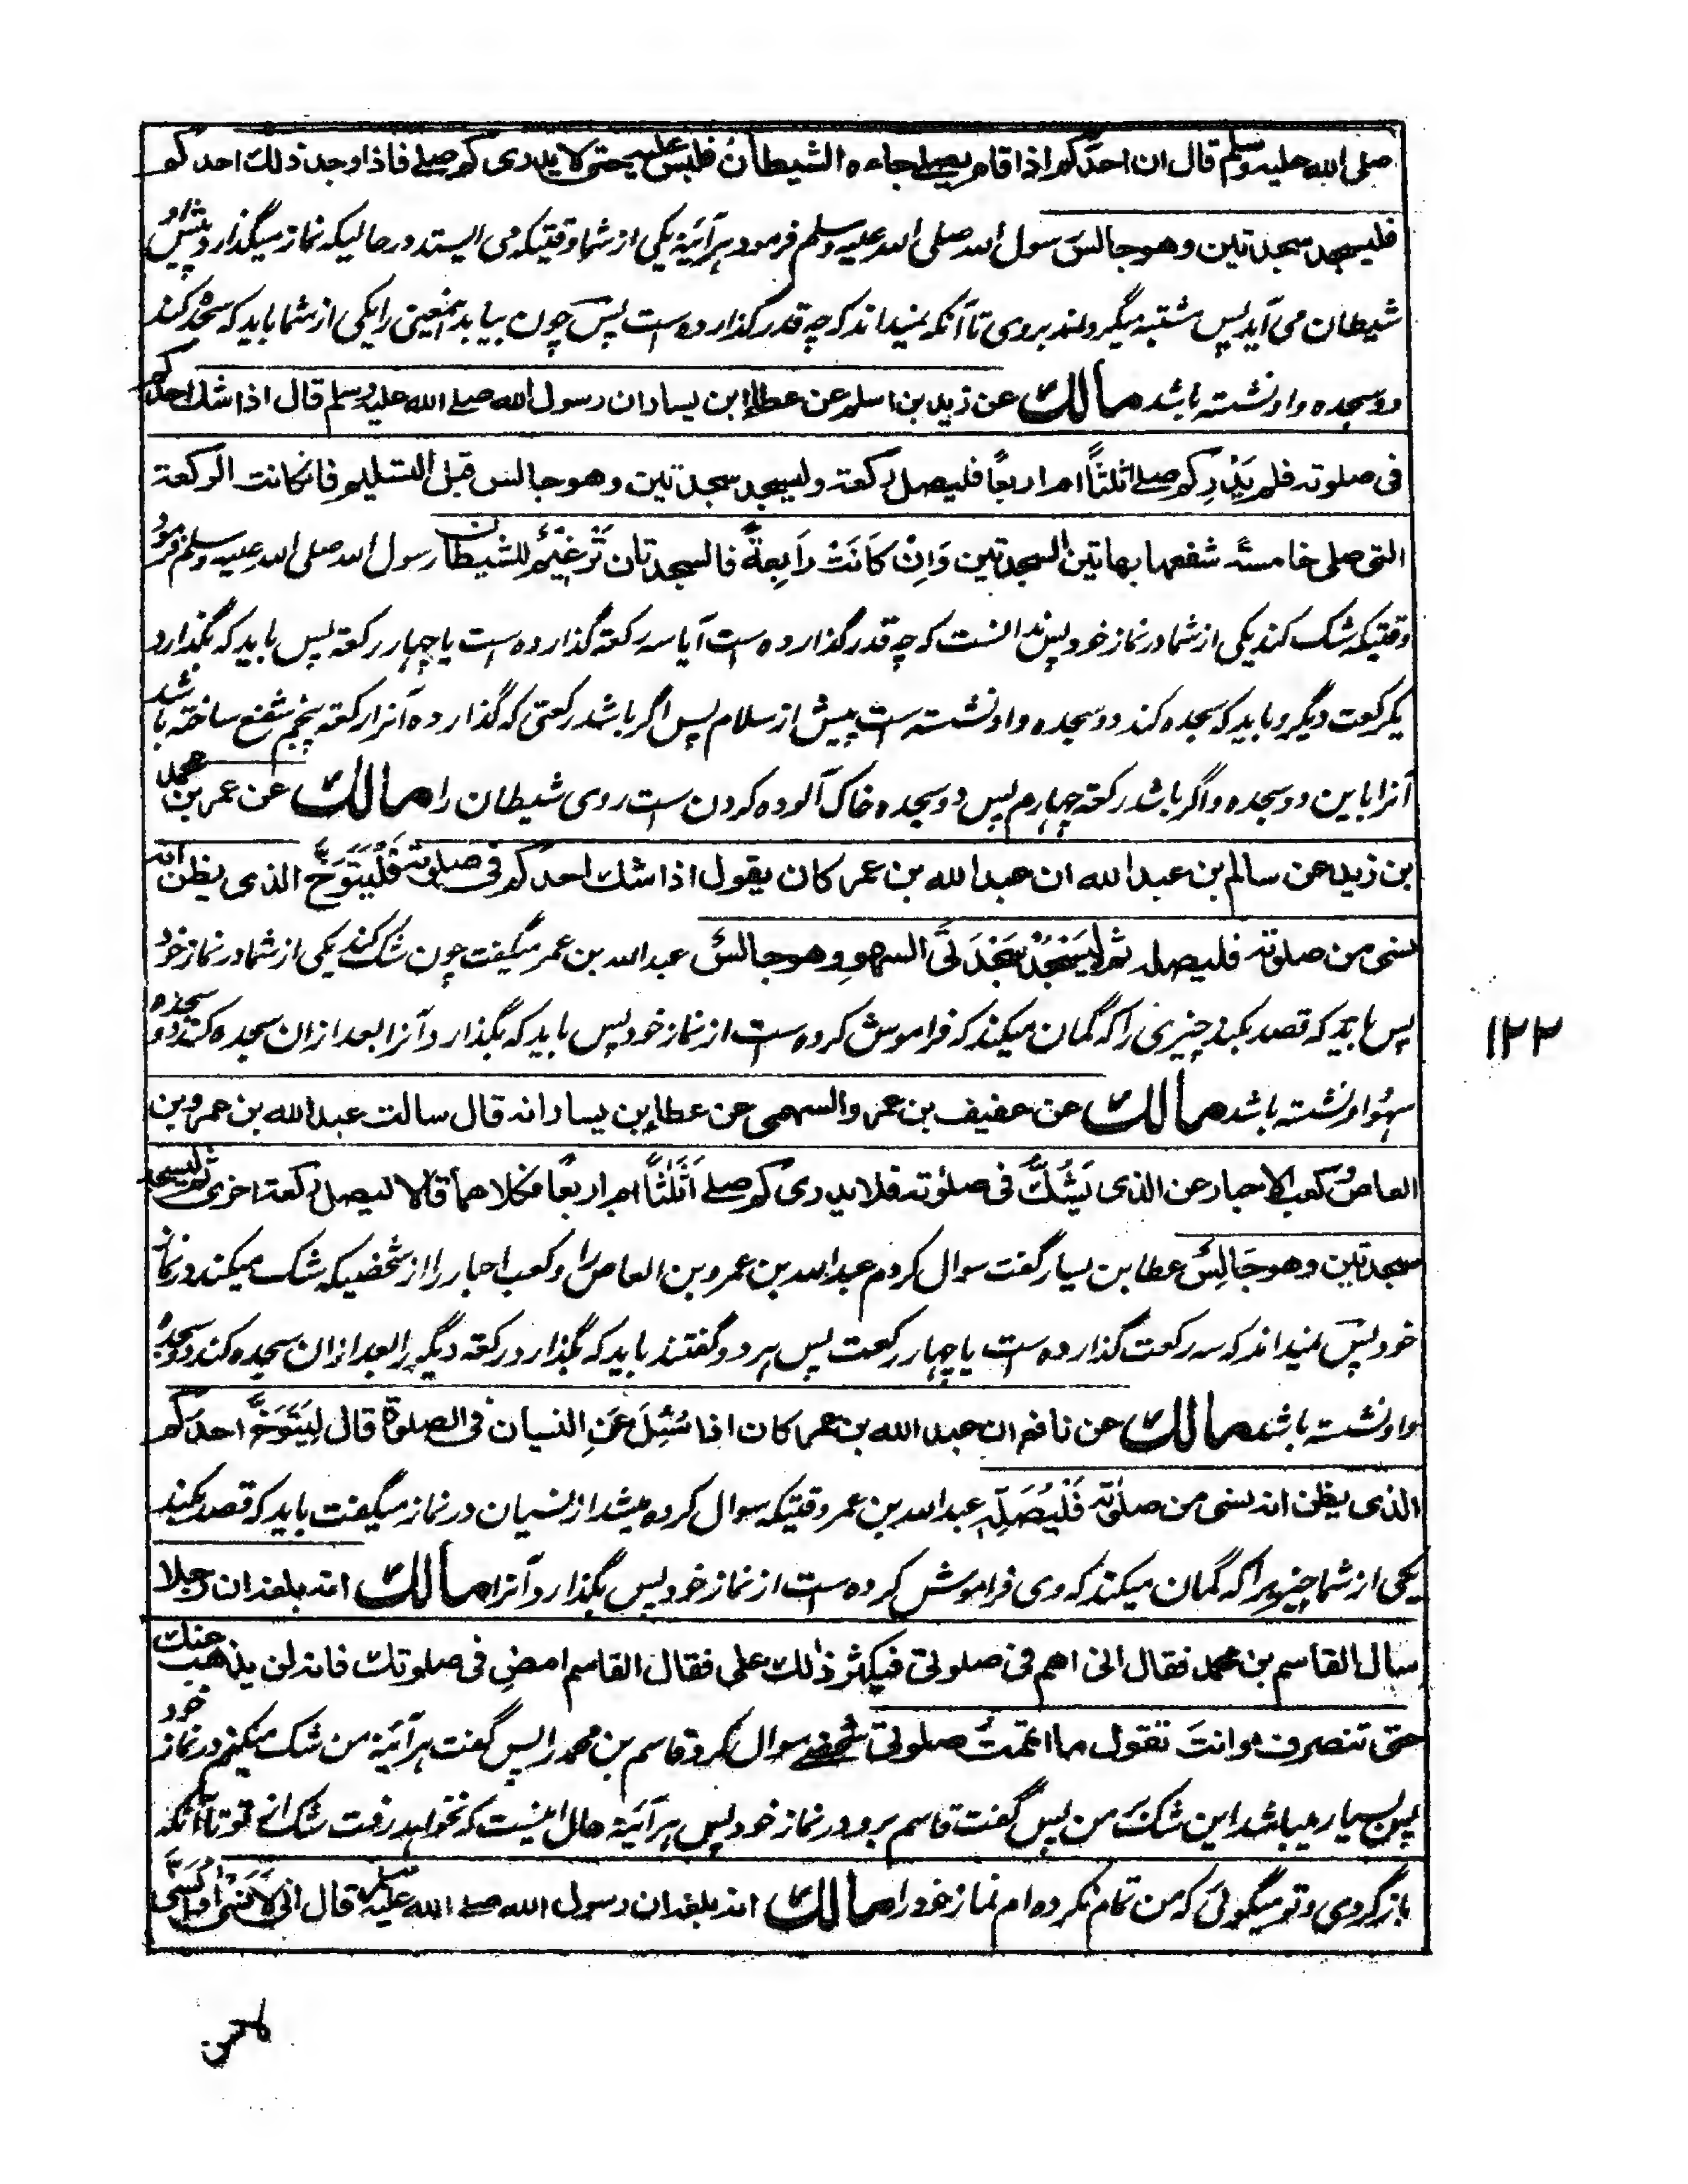 صلی الله علیه وسلم قال ان احدکم اذا قام یصلے جاءه الشیطانُ فلبس علیه حتی لا یدری کم صلے فاذا وجد ذلک احدکم
فلیسجد سجدتین وهو جالسٌ رسول الله صلی الله علیه وسلم فرمود هرآئینه یکی از شما وقتیکه می ایستد در حالیکه نماز میگذارد پیش او
شیطان می آید پس مشتبه میگرداند بروی تا آنکه نمیداند که چه قدر گذارده است پس چون بیابد اینمعنی را یکی از شما باید که سجده کند
دو سجده و او نشسته باشد مالک عن زید بن اسلم عن عطاء ابن یسار ان رسول الله صلے الله علیه وسلم قال اذا شک احدکم
فی صلوته فلم یَدْرِ کم صلے اثلثًا ام اربعًا فلیصل رکعة ولیسجد سجدتین وهو جالس قبل التسلیم فان کانت الرکعة
التی صلی خامسةً شفعها بهاتین السجدتین وَاِنْ کَانَتْ رَابِعةً فالسجدتان تَرْغِیْمٌ للشیطان رسول الله صلی الله علیه وسلم فرمود
وقتیکه شک کند یکی از شما در نماز خود پس ندانست که چه قدر گذارده است آیا سه رکعة گذارده است یا چهار رکعة پس باید که بگذارد
یک رکعت دیگر و باید که سجده کند دو سجده و او نشسته است پیش از سلام پس اگر باشد رکعتی که گذارده آنرا رکعة پنجم شفع ساخته باشد
آنرا باین دو سجده و اگر باشد رکعة چهارم پس دو سجده خاک آلوده کردن ست روی شیطان را مالک عن عمر بن محمد
بن زید عن سالم بن عبد الله ان عبد الله بن عمر کان یقول اذا شک احدکم فی صلوته فَلْیَتَوَخَّ الذی یظن انه
نسی من صلوته فلیصله ثم لْیَسْجُدْ سَجْدَتَیِ السهوِ وهو جالسٌ عبد الله بن عمر میگفت چون شک کند یکی از شما در نماز خود
پس باید که قصد بکند چیزی را که گمان میکند که فراموش کرده ست از نماز خود پس باید که بگذارد آنرا بعد ازان سجده کند دو سجده
سهو و او نشسته باشد مالک عن عفیف بن عمرو السهمی عن عطاء بن یسار انه قال سالت عبد الله بن عمرو بن
العاص و کعب الاحبار عن الذی یَشُکُّ فی صلوته فلا یدری کم صلے اَثَلٰثًا ام اربعًا فکلاهما قالا لیصل رکعة اخری ثم لیسجد
سجدتین وهو جَالِسٌ عطا بن یسار گفت سوال کردم عبد الله بن عمرو بن العاص را و کعب احبار را از شخصیکه شک میکند در نماز
خود پس نمیداند که سه رکعت گذارده ست یا چهار رکعت پس هر دو گفتند باید که بگذارد رکعة دیگر را بعد ازان سجده کند دو سجده
و او نشسته باشد مالک عن نافع ان عبد الله بن عمر کان اذا سُئِلَ عَنِ النسیان فی الصلوة قال لِیَتَوَخَّ احدکم
الذی یظن انه نسی من صلوته فَلْیُصَلِّهِ عبد الله بن عمر وقتیکه سوال کرده میشد از نسیان در نماز میگفت باید که قصد بکند
یکی از شما چیزیرا که گمان میکند که وی فراموش کرده ست از نماز خود پس بگذارد آنرا مالک انه بلغه ان رجلا
سال القاسم بن محمد فقال انی اهم فی صلوتی فیکثر ذلک علی فقال القاسم امضِ فی صلوتک فانه لن یذهب عنک
حتی تنصرف وانتَ تقول ما اتممتُ صلوتی شخصے سوال کرد قاسم بن محمد را پس گفت هرآئینه من شک میکنم در نماز خود
پس بسیار میباشد این شک من پس گفت قاسم برو در نماز خود پس هرآئینه حال اینست که نخواهد رفت شک از تو تا آنکه
باز گردی و تو میگوئی که من تمام نکرده ام نماز خود را مالک انه بلغه ان رسول الله صلے الله علیه وسلم قال انی لَاَنْسٰی اَوْ اُنَسّٰی
۱۲۲